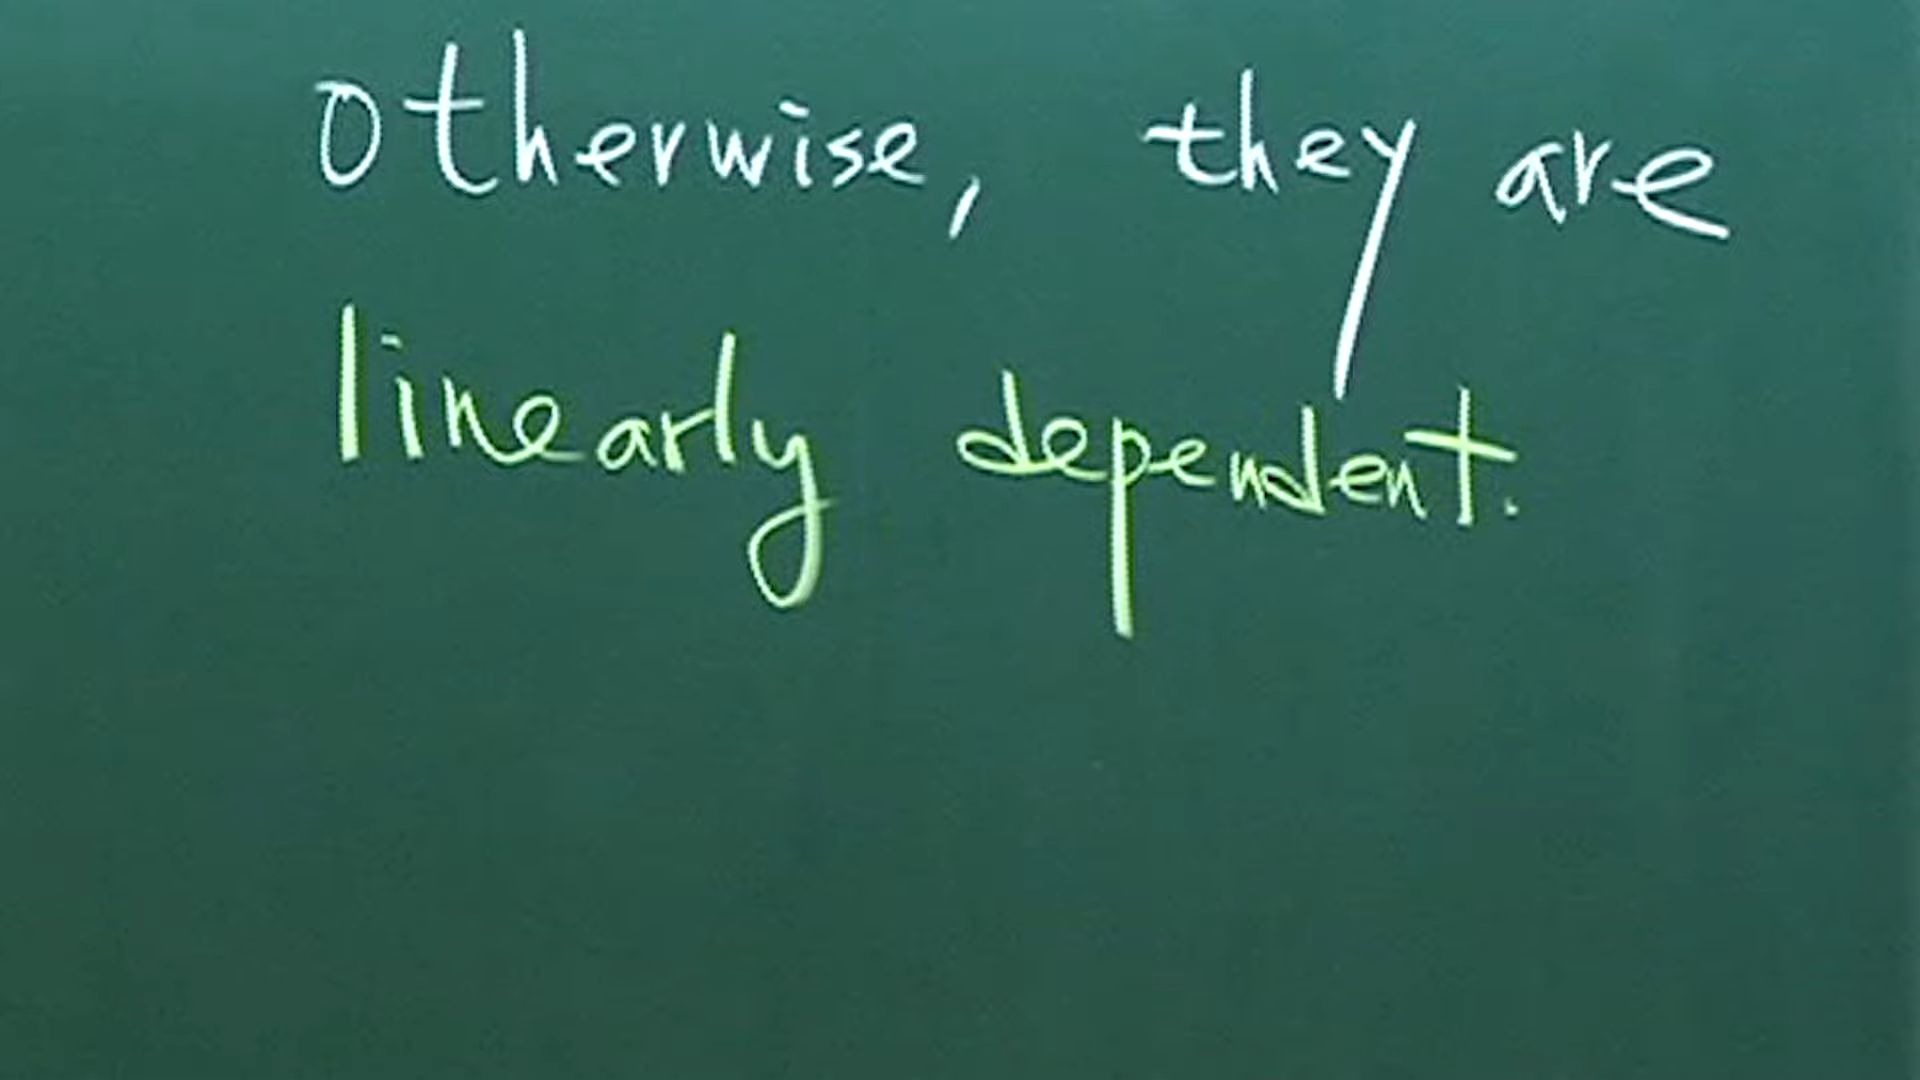 otherwise, they are
linearly dependent.